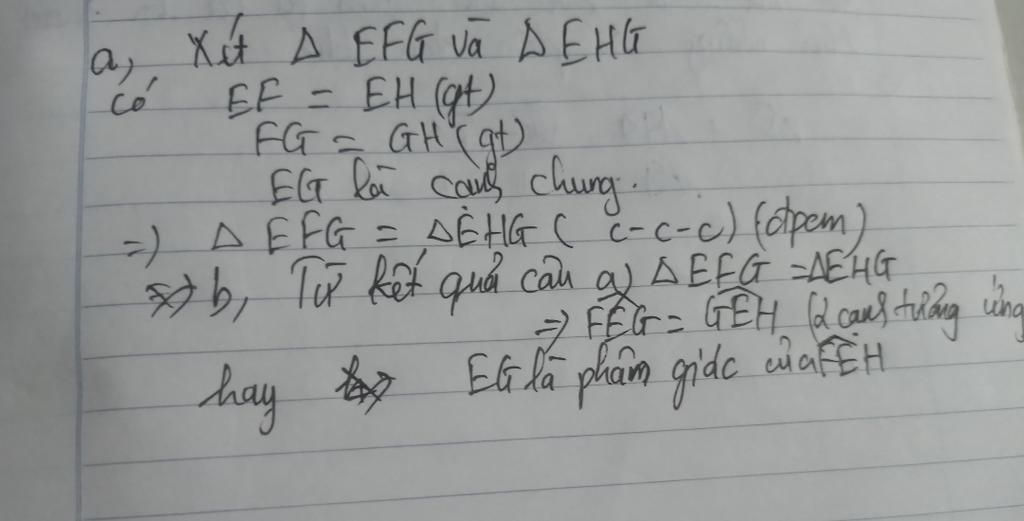 a, Xét Δ EFG và Δ EHG
có EF = EH (gt)
FG = GH (gt)
EG là cạnh chung.
=> Δ EFG = ΔEHG ( c-c-c) (đpcm)
b, Từ kết quả câu a) ΔEFG = ΔEHG
=> FEG = GEH (2 cạnh tương ứng
hay EG là phâm giác của FEH